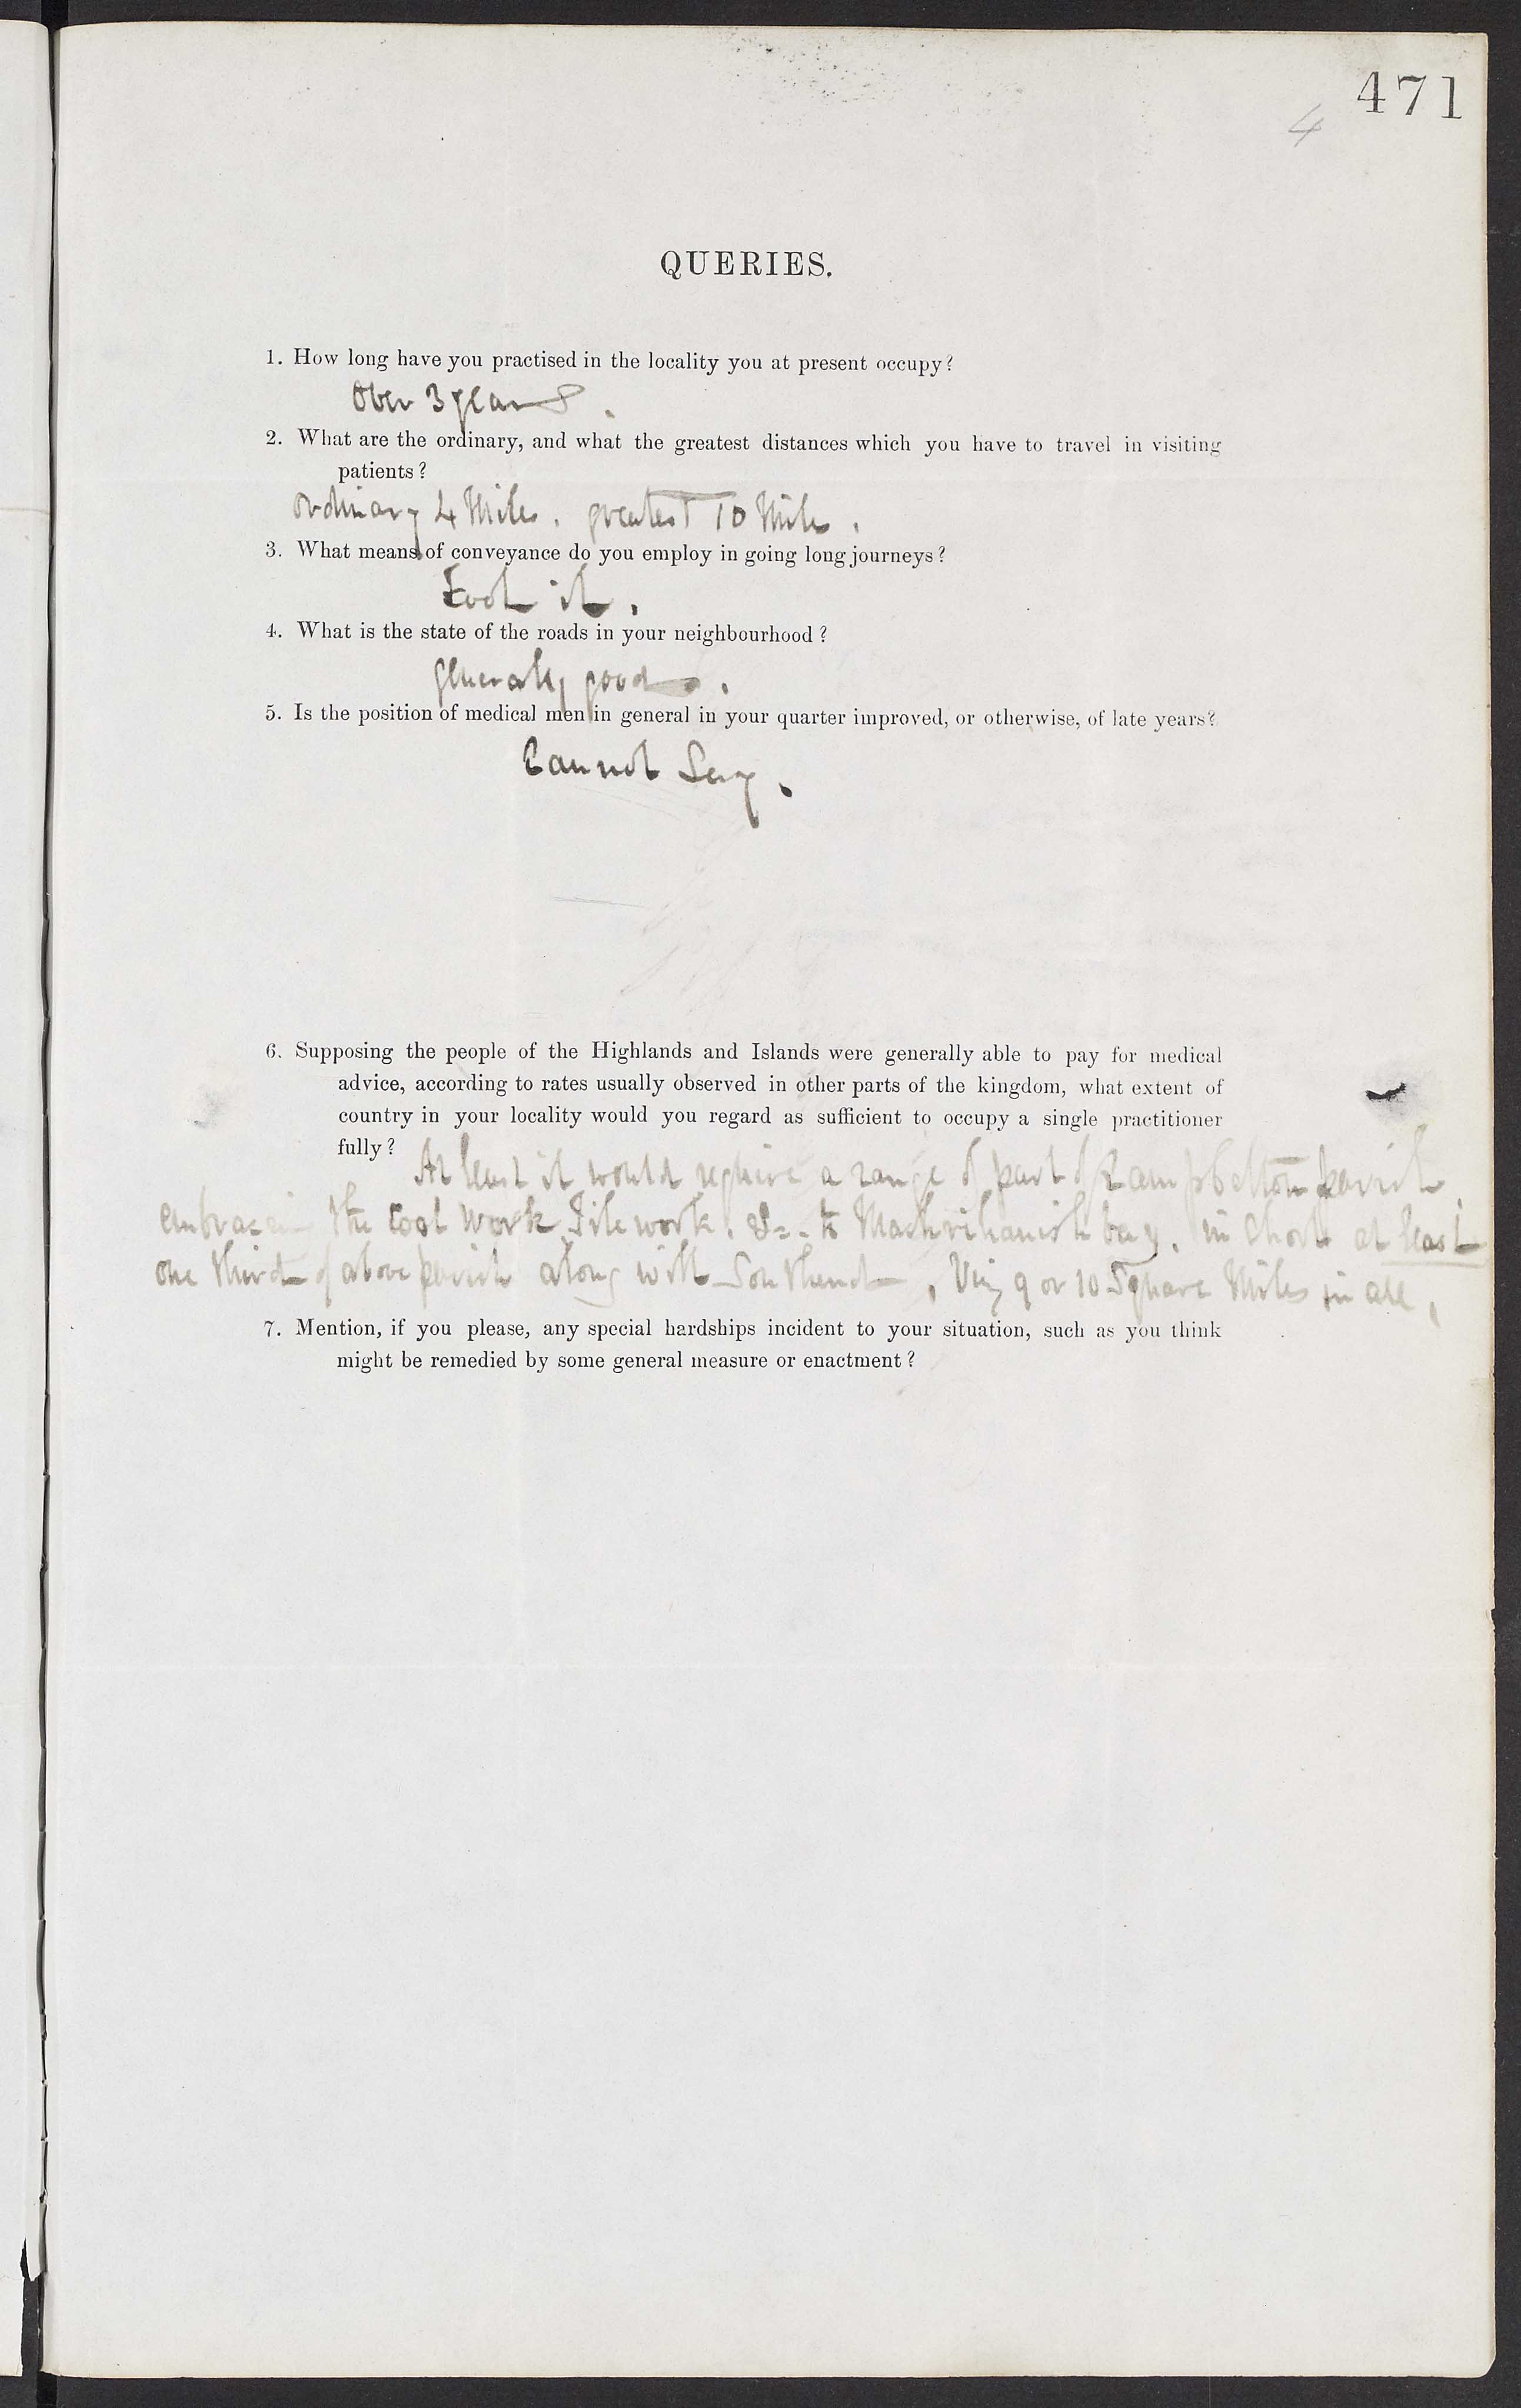 471
4
QUERIES.
1. How long have you practised in the locality you at present occupy?
Over 3 years.
2. What are the ordinary, and what the greatest distances which you have to travel in visiting
patients?
ordinary 4 Miles. greatest 10 Miles.
3. What means of conveyance do you employ in going long journeys?
Foot it.
4. What is the state of the roads in your neighbourhood?
generally good.
5. Is the position of medical men in general in your quarter improved, or otherwise, of late years?
Cannot Say.
6. Supposing the people of the Highlands and Islands were generally able to pay for medical
advice, according to rates usually observed in other parts of the kingdom, what extent of
country in your locality would you regard as sufficient to occupy a single practitioner
fully?
At least it would require a range of part of Campbelton parish
the Coal work Tile work. &c. to Machrihanish bay. in Short at least
one third of above parish along with Southend, Viz 9 or 10 Square Miles in all.
7. Mention, if you please, any special hardships incident to your situation, such as you think
might be remedied by some general measure or enactment?